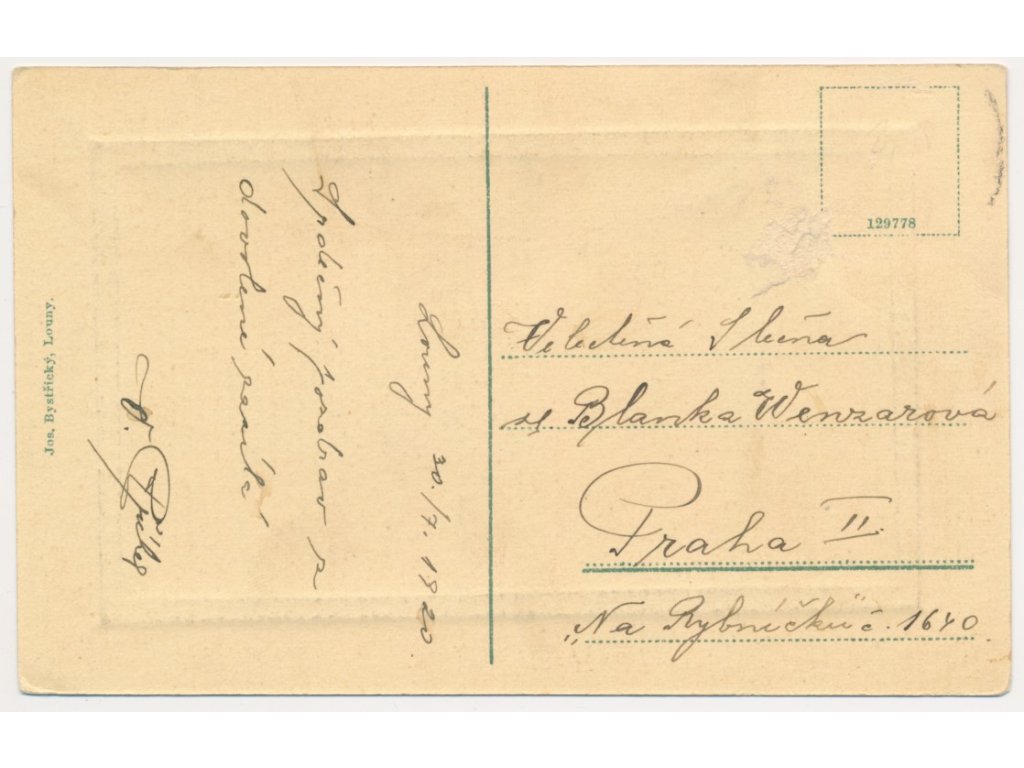 Louny 30./7. 1920
Srdečný pozdrav s
dovolené zasílá
Jos. Bystřický, Louny.
129778
Velectěná Slečna
sl Blanka Wenzarová
Praha II.
„Na Rybníčku" č. 1640.